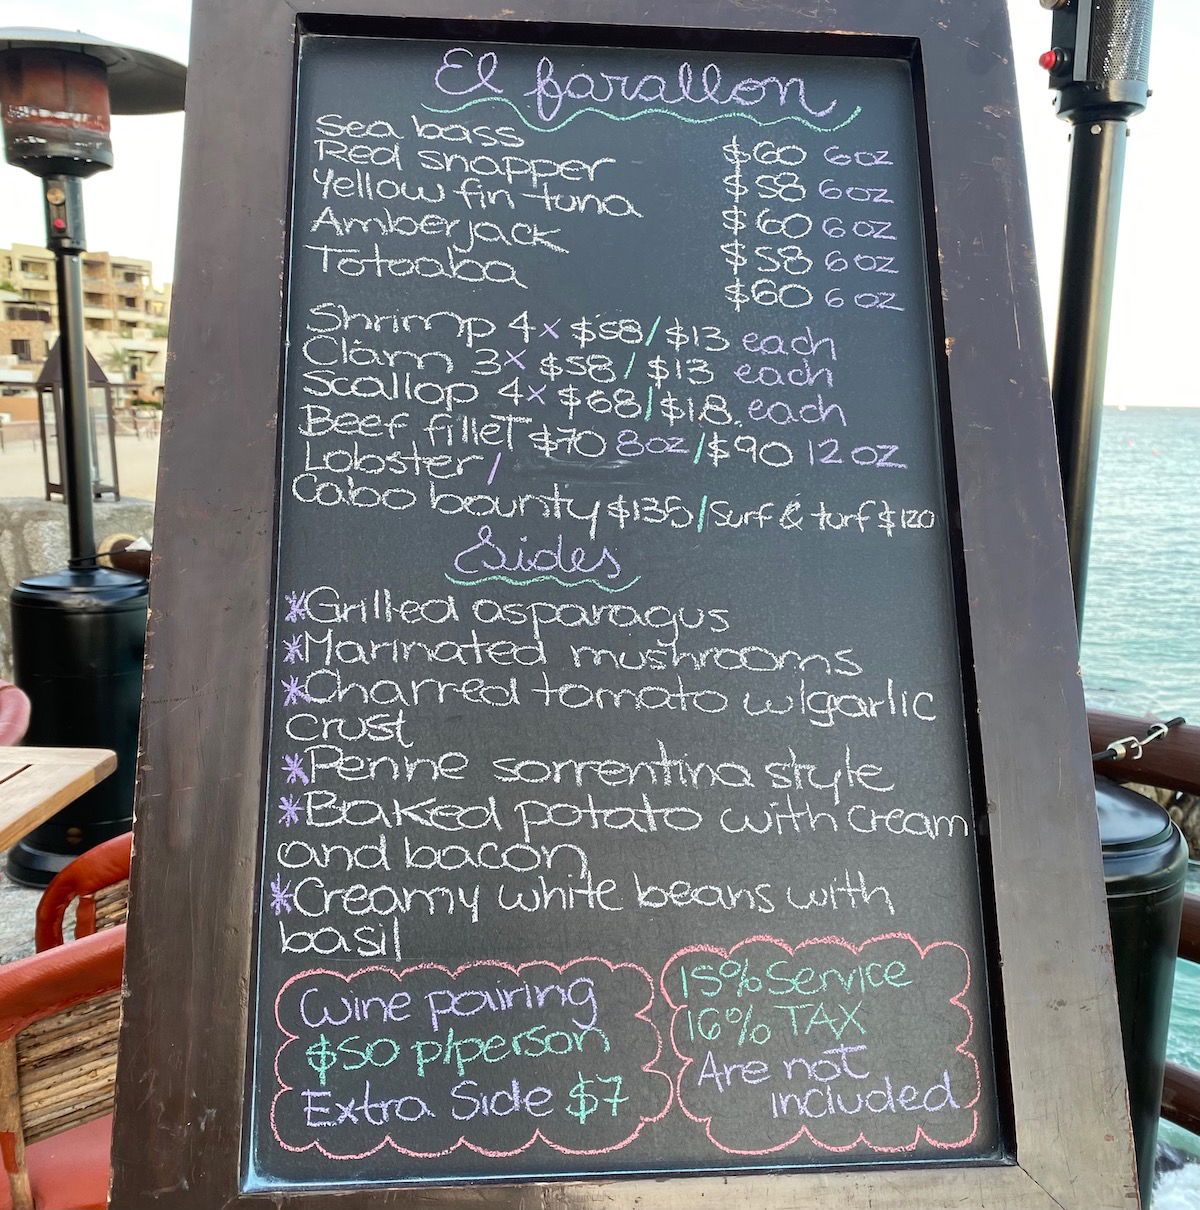 El farallon
Sea bass $60 6oz
Red snapper $58 6oz
Yellow fin tuna $60 6oz
Amberjack $58 6oz
Totoaba $60 6oz
Shrimp 4x $58/$13 each
Clam 3x $58/$13 each
Scallop 4x $68/$18. each
Beef fillet $70 8oz/$90 12oz
Lobster/
Cabo bounty $135/Surf & turf $120
Sides
*Grilled asparagus
*Marinated mushrooms
*Charred tomato w/garlic
crust
*Penne sorrentina style
*Baked potato with cream
and bacon
*Creamy white beans with
basil
Wine pairing
$50 p/person
Extra Side $7
15% Service
16% TAX
Are not
included